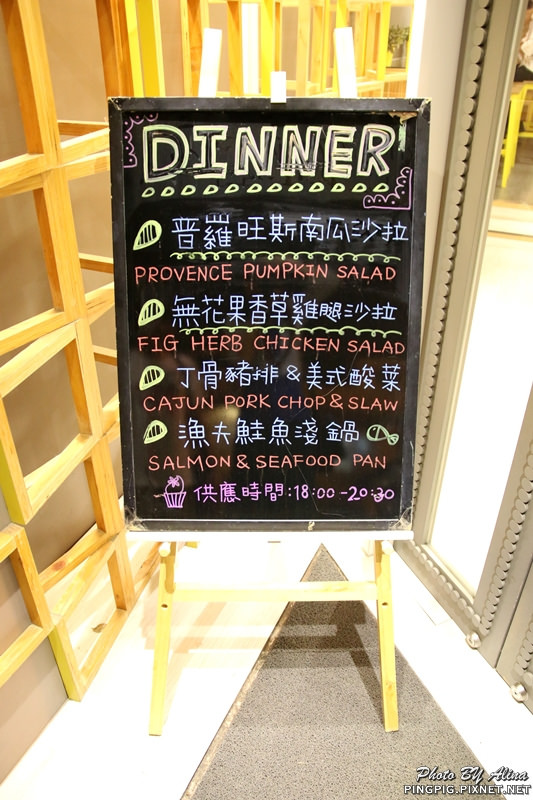 DINNER
普羅旺斯南瓜沙拉
PROVENCE PUMPKIN SALAD
無花果香草雞腿沙拉
FIG HERB CHICKEN SALAD
丁骨豬排&美式酸菜
CAJUN PORK CHOP & SLAW
漁夫鮭魚淺鍋
SALMON & SEAFOOD PAN
供應時間:18:00-20:30
Photo BY Alina
PINGPIG.PIXNET.NET